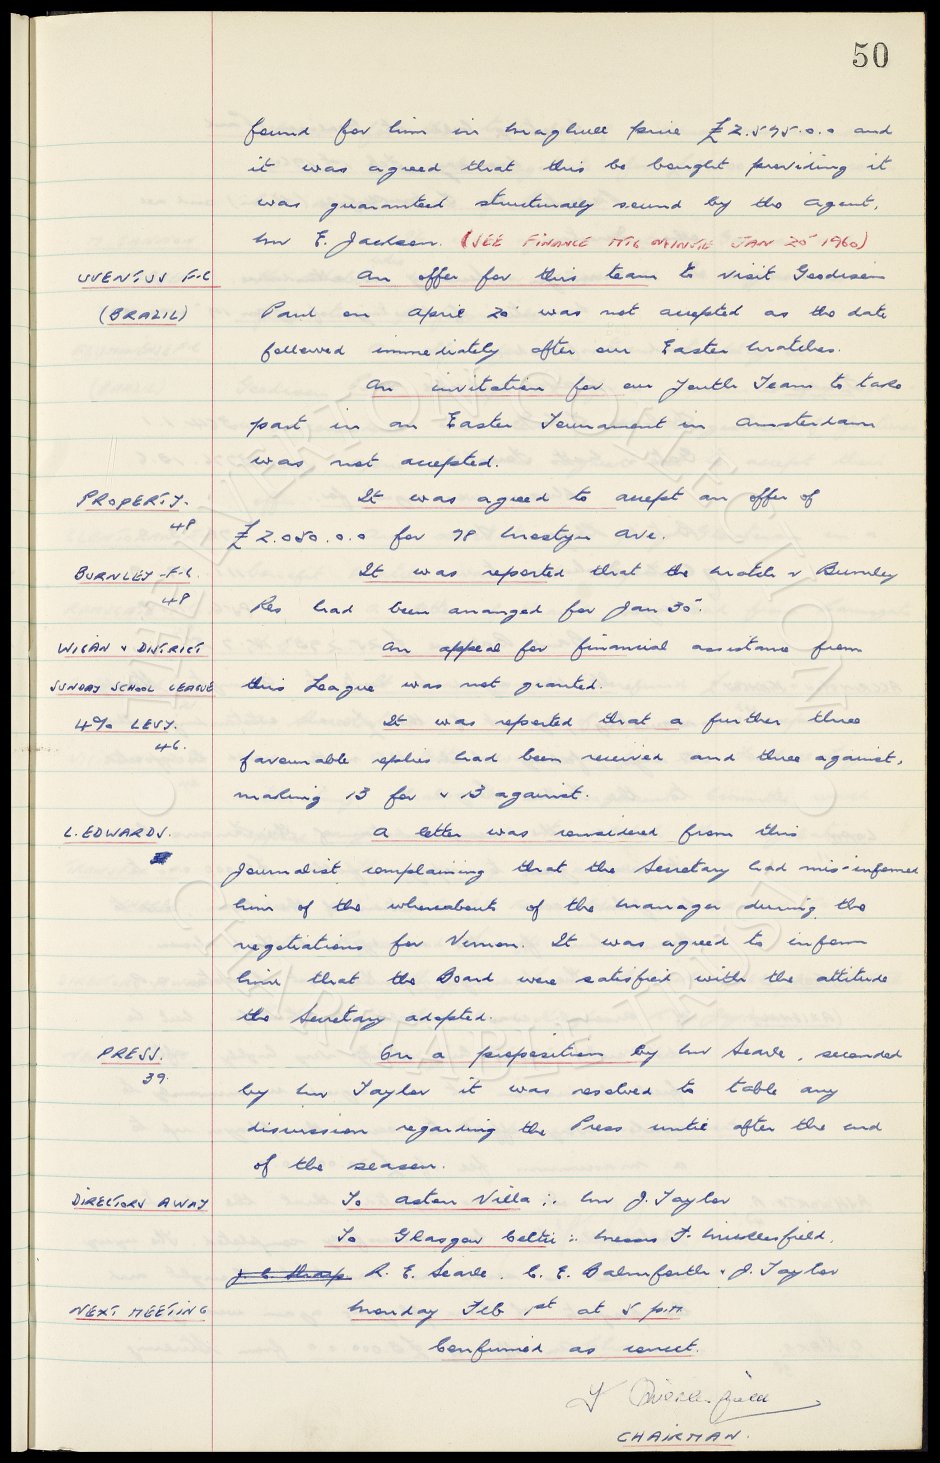 50
found for him in Maghull price £2.575.0.0 and
it was agreed that this be bought providing it
was guaranteed structurally sound by the agent,
Mr E. Jackson. (SEE FINANCE MTG MINUTE JAN 25 1960)
UVENTUS F.C An offer for this team to visit Goodison
(BRAZIL) Park on April 20 was not accepted as the date
followed immediately after our Easter Matches.
An invitation for our Youth Team to take
part in an Easter Tournament in Amsterdam
was not accepted.
PROPERTY. It was agreed to accept an offer of
48 £2.050.0.0 for 78 Mostyn Ave.
BURNLEY F.C. It was reported that the Match v Burnley
48 Res had been arranged for Jan 30.
WIGAN & DISTRICT An appeal for financial assistance from
SUNDAY SCHOOL LEAGUE this League was not granted.
4% LEVY. It was reported that a further three
46. favourable replies had been received and three against,
making 13 for & 13 against.
L. EDWARDS. A letter was considered from this
Journalist complaining that the Secretary had mis-informed
him of the whereabouts of the Manager during the
negotiations for Vernon. It was agreed to inform
him that the Board were satisfied with the attitude
the Secretary adopted.
PRESS. On a proposition by Mr Searle, seconded
39. by Mr Taylor it was resolved to table any
discussion regarding the Press until after the end
of the season.
DIRECTORS AWAY To Aston Villa :. Mr J. Taylor
To Glasgow Celtic :. Messrs F. Micklesfield,
J. C. Sharp R. E. Searle. C. E. Balmforth & J. Taylor
NEXT MEETING Monday Feb 1st at 5 p.m
Confirmed as correct.
F Micklesfield
CHAIRMAN.